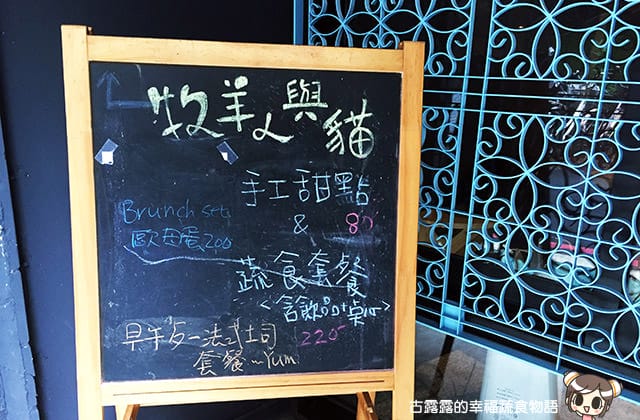 牧羊人與貓
手工甜點
& 80
Brunch set
歐姆蛋200
蔬食套餐
<含飲品+桌心>
220
早午夕一法式土司
套餐~Yum
古露露的幸福蔬食物語